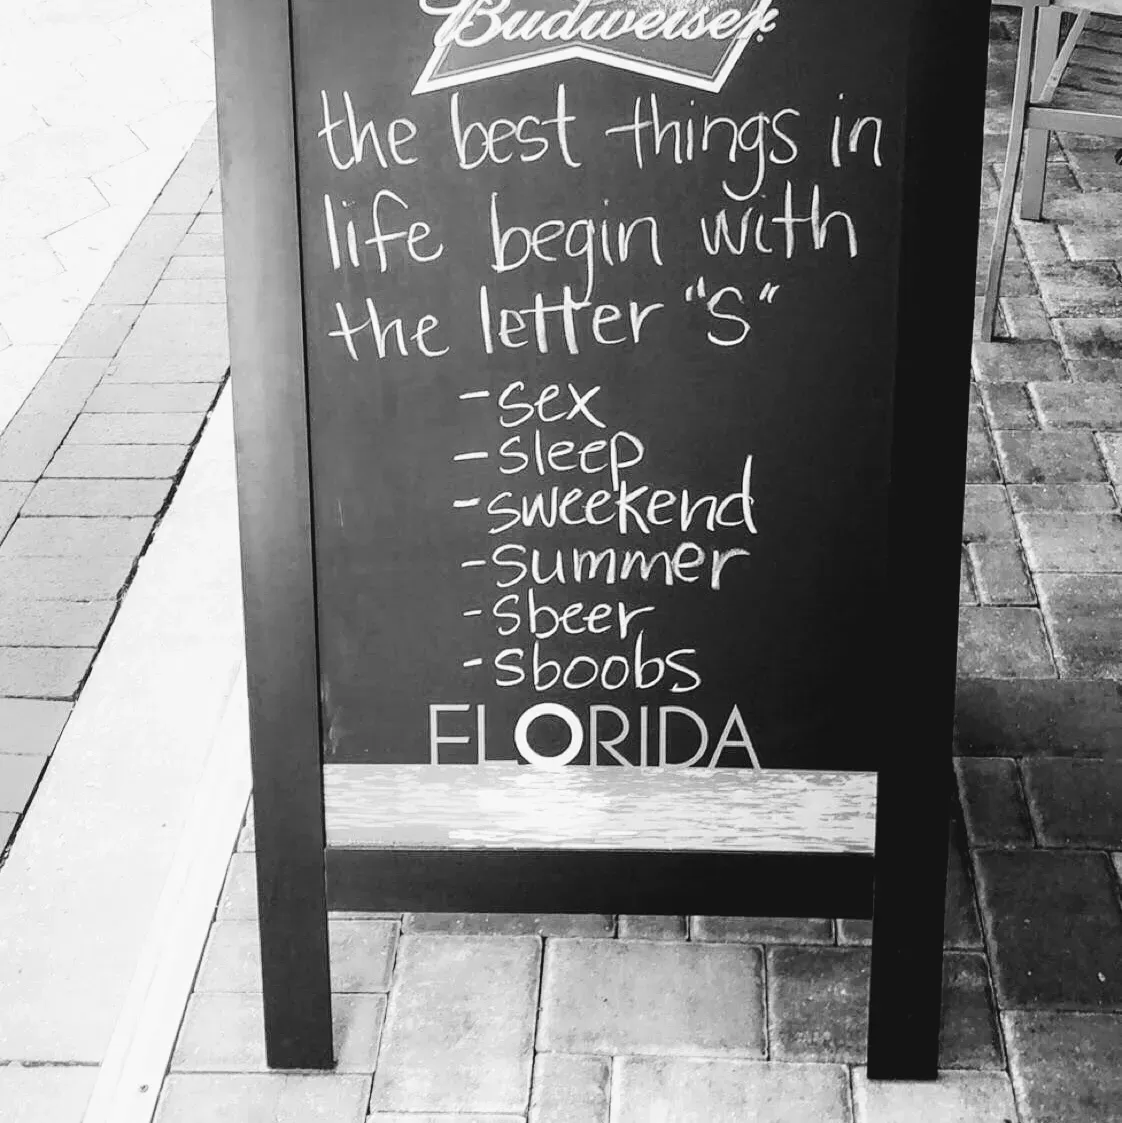 Budweiser
the best things in
life begin with
the letter "S"
- sex
- sleep
- sweekend
- summer
- sbeer
- sboobs
FLORIDA